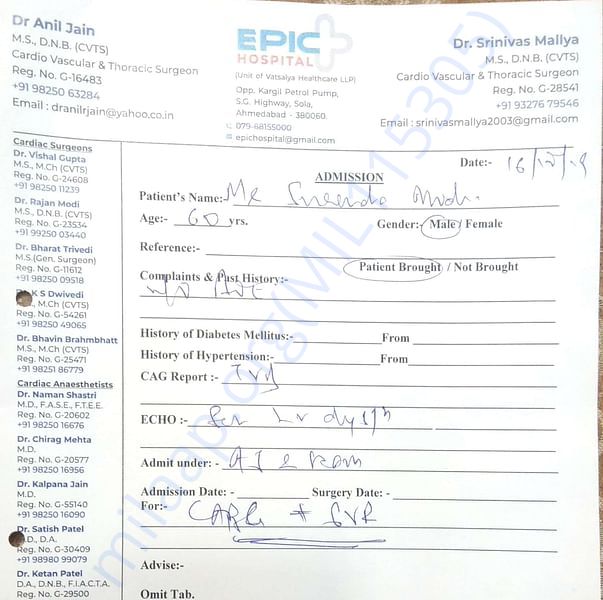 Dr Anil Jain
M.S., D.N.B. (CVTS)
Cardio Vascular & Thoracic Surgeon
Reg. No. G-16483
+91 98250 63284
Email : dranilrjain@yahoo.co.in
EPIC
HOSPITAL
(Unit of Vatsalya Healthcare LLP)
Opp. Kargil Petrol Pump,
S.G. Highway, Sola,
Ahmedabad - 380060.
079-68155000
epichospital@gmail.com
Dr. Srinivas Mallya
M.S., D.N.B. (CVTS)
Cardio Vascular & Thoracic Surgeon
Reg. No. G-28541
+91 93276 79546
Email : srinivasmallya2003@gmail.com
Cardiac Surgeons
Dr. Vishal Gupta
M.S., M.Ch (CVTS)
Reg. No. G-24608
+91 98250 11239
Dr. Rajan Modi
M.S., D.N.B. (CVTS)
Reg. No. G-23534
+91 99250 03440
Dr. Bharat Trivedi
M.S.(Gen. Surgeon)
Reg. No. G-11612
+91 98250 09518
K S Dwivedi
M.Ch (CVTS)
Reg. No. G-54261
+91 98250 49065
Dr. Bhavin Brahmbhatt
M.S., M.Ch (CVTS)
Reg. No. G-25471
+91 98251 86779
Cardiac Anaesthetists
Dr. Naman Shastri
M.D., F.A.S.E., F.T.E.E.
Reg. No. G-20602
+91 98250 16676
Dr. Chirag Mehta
M.D.
Reg. No. G-20577
+91 98250 16956
Dr. Kalpana Jain
M.D.
Reg. No. G-55140
+91 98250 16090
Dr. Satish Patel
D., D.A.
Reg. No. G-30409
+91 98980 99079
Dr. Ketan Patel
D.A., D.N.B., F.I.A.C.T.A.
Reg. No. G-29500
Date:-
ADMISSION
Patient's Name:- Mr
Age:- 60 yrs. Gender:- Male / Female
Reference:-
Patient Brought / Not Brought
Complaints & Past History:-
History of Diabetes Mellitus:- From
History of Hypertension:- From
CAG Report :- TVD
ECHO :- Sev LV dysfn
Admit under: -
Admission Date: - Surgery Date: -
For:- CABG + SVR
Advise:-
Omit Tab.
milaap.org(MIL415305)